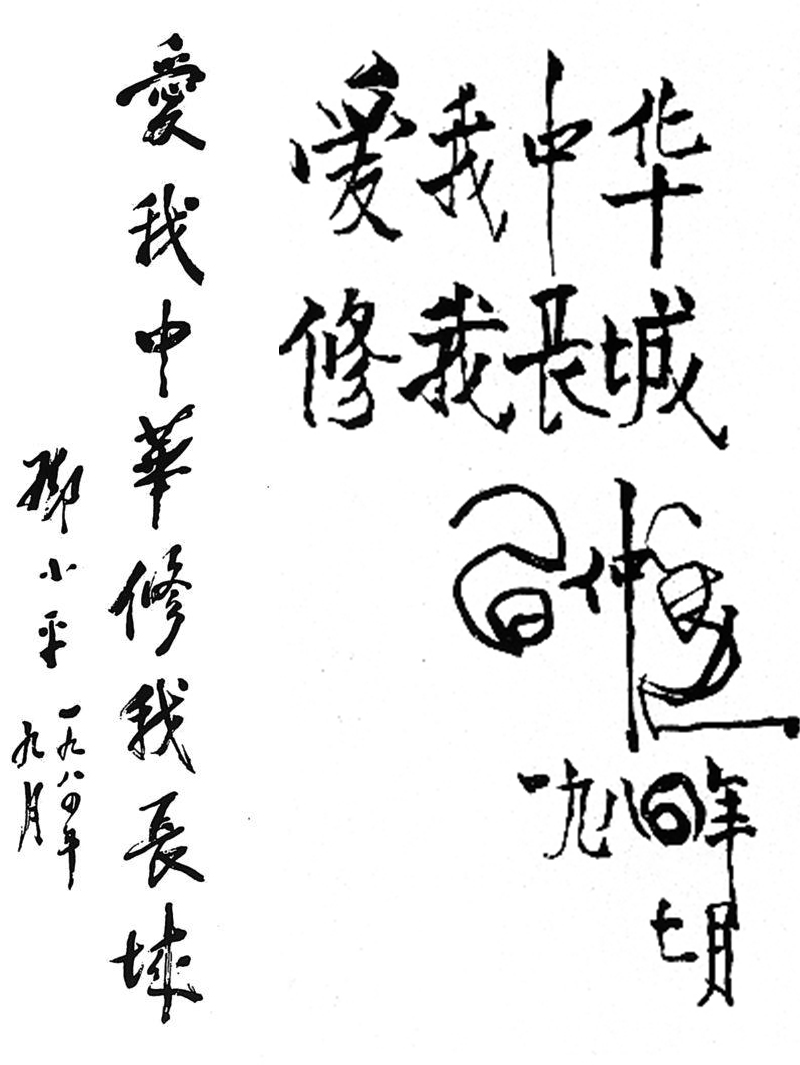 愛我中華修我長城
鄧小平
一九八四年
九月
愛我中华
修我長城
習仲勛
一九八四年
七月